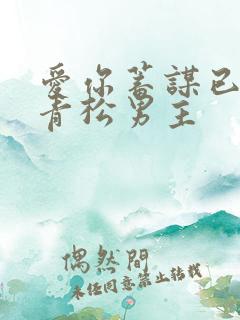 愛你蓄謀已
青松男主
偶然間
未任同意禁止轉載